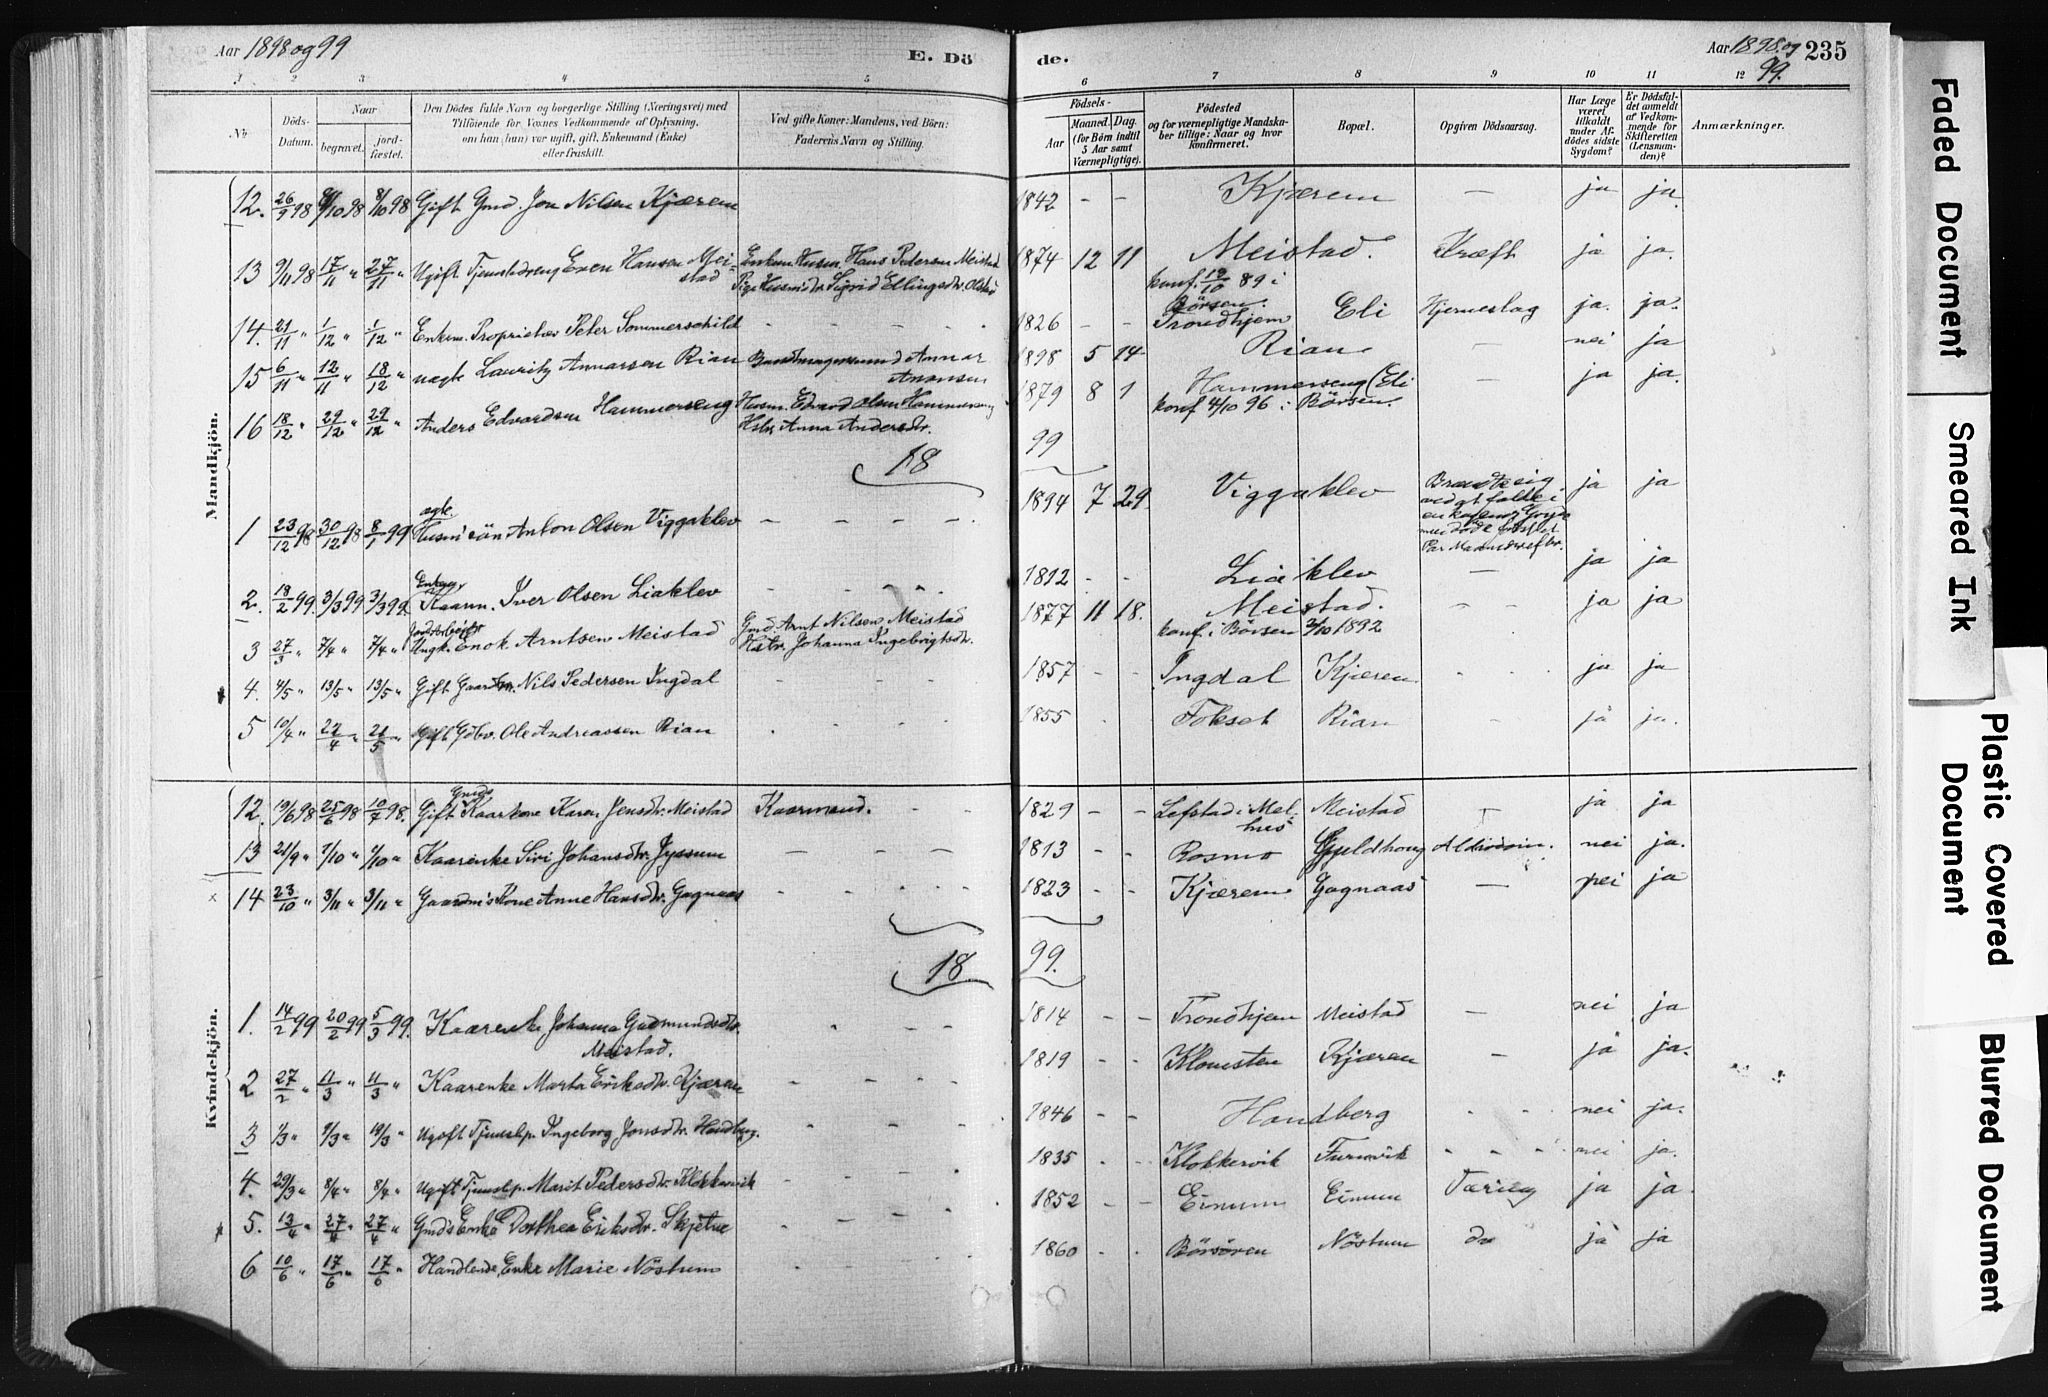 Aar 1898 og 99
E. Dö
de.
Aar 1898 og 99.
235
1 2 3 4 5 6 7 8 9 10 11 12
No
Döds-Datum.
Naar
begravet.
jord-fæstet.
Den Dödes fulde Navn og borgerlige Stilling (Næringsvei) med
Tilföiende for Voxnes Vedkommende af Oplysning,
om han (hun) var ugift, gift, Enkemand (Enke)
eller fraskilt.
Ved gifte Koner: Mandens, ved Börn:
Faderens Navn og Stilling.
Födsels-
Aar
Maaned. Dag.
(for Börn indtil
5 Aar samt
Værnepligtige).
Födested
og for værnepligtige Mandska-
ber tillige: Naar og hvor
konfirmeret.
Bopæl.
Opgiven Dödsaarsag.
Har Læge
været
tilkaldt
under Af-
dödes sidste
Sygdom?
Er Dödsfal-
det anmeldt
af Vedkom-
mende for
Skifteretten
(Lensman-
den)?
Anmærkninger.
Mandkjön.
12. 26/9 98 8/10 98 8/10 98 Gift Gmd. Jon Nilsen Kjærem 1842 - - Kjærem — ja ja
13 9/11 98 17/11 " 27/11 " Ugift Tjenestedreng Even Hansen Mei-
stad
Enkem. Husm. Hans Pedersen Meistad
Pige Husmdtr. Sigrid Ellingsdtr. Olstad
1874 12 11 Meistad. Kræft ja ja.
konf. 13/10 89 i
Börsen.
14. 21/11 " 1/12 " 1/12 " Enkem. Proprietær Peter Sommerschild - - - - 1826 - - Trondhjem Eli Hjerneslag ja. ja.
15 6/11 " 12/11 " 18/12 " uægte Lauritz Annarsen Rian
Annar
1898 5 14 Rian — nei ja
16 18/12 " 29/12 " 29/12 " Anders Edvardsen Hammerseng
Husm. Edvard Olsen Hammerseng
Hstr. Anna Andersdtr.
1879 8 1 Hammerseng (Eli — ja ja.
konf 4/10 96 i Börsen.
18 99
1 23/12 98 30/12 98 8/1 99 ægte.
Husm's sön Anton Olsen Viggaklev - - - - 1894 7 29. Viggaklev ja ja
2. 18/2 99. 3/3 99 3/3 99.
Kaarm. Iver Olsen Liaklev - - - - 1812 - - Liaklev — ja ja
3 27/3 " 7/4 " 7/4 "
Ungk. Enok Arntsen Meistad
Gmd. Arnt Nilsen Meistad
Hstr. Johanna Ingebrigtsdtr.
1877 11 18. Meistad. - - ja ja
konf. i Börsen 2/10 1892
4. 4/5 " 13/5 " 13/5 " Gift Gaardm. Nils Pedersen Ingdal - - - 1857 - - Ingdal Kjærem - - ja ja
5 10/4 " 22/4 " 21/5 " Gift Gdbr. Ole Andreassen Rian - - - 1855 - Fokset Rian - ja ja.
Kvindekjön.
12. 19/6 98 25/6 98 10/7 98.
Gmds
Gift Kaarkone Karen Jensdtr. Meistad Kaarmand. - - 1829 - - Lefstad i Mel-
hus
Meistad — ja ja
13 21/9 " 1/10 " 1/10 " Kaarenke Siri Johansdtr. Jyssum - - - - 1813 - - Rosmo Gjeldhaug Alderdom. nei ja.
x 14 23/10 " 3/11 " 3/11 " Gaardm's Kone Anne Hansdtr. Gagnaas - - - - 1823 - - Kjærem Gagnaas — nei ja
18 99.
1. 14/2 99 20/2 99 5/3 99. Kaarenke Johanna Gudmundsdtr.
Meistad.
- - - 1814 - - Trondhjem Meistad — nei ja
2 27/2 " 11/3 " 11/3 " Kaarenke Marta Eriksdtr. Kjærem - - - - 1819 - - Klomsten Kjærem - ja ja.
3 1/3 " 9/3 " 19/3 " Ugift Tjenestp. Ingeborg Jonsdtr. Handberg. - - - 1846 - - Handberg - - nei ja.
4. 29/3 " 8/4 " 8/4 " Ugift Tjenestp. Marit Pedersdtr. Klokkervik - - - 1835 - - Klokkervik Furuvik - - - nei ja.
5. 13/4 " 27/4 " 27/4 " Gmds Enke Dorthea Eriksdtr. Skjetne - - - - 1852 - - Einum Einum Tæring ja ja.
6 10/6 " 17/6 " 17/6 " Handlende Enke Marie Nöstum - - - 1860 - - Börsören Nöstum do ja ja
Faded Document
Smeared Ink
Plastic Covered
Document
Blurred Document